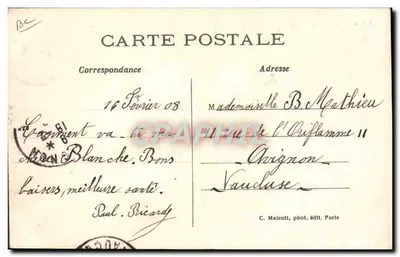 BC
CARTE POSTALE
Correspondance
Adresse
16 Février 08
Comment va-t-il ma
chère Blanche. Bons
baisers, meilleure santé.
Paul. Ricard
Mademoiselle B. Mathieu
11 rue de l'Oriflamme 11
Avignon
Vaucluse
C. Malcuit, phot. édit. Paris